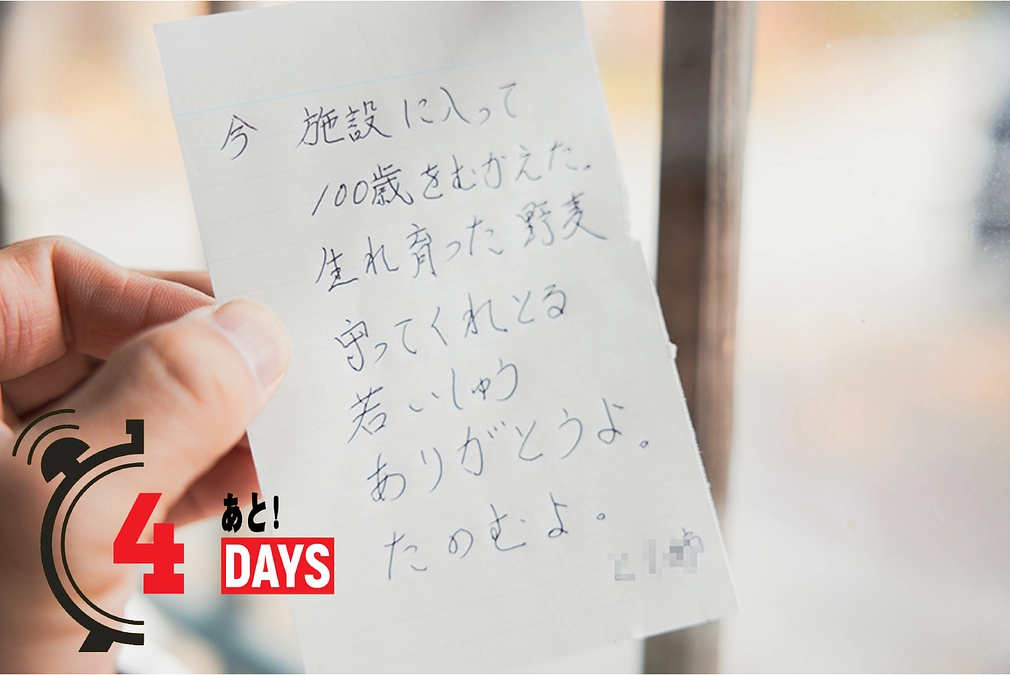 今 施設に入って
100歳をむかえた。
生れ育った野麦
守ってくれとる
若いしゅう
ありがとうよ。
たのむよ。
あと!
4 DAYS